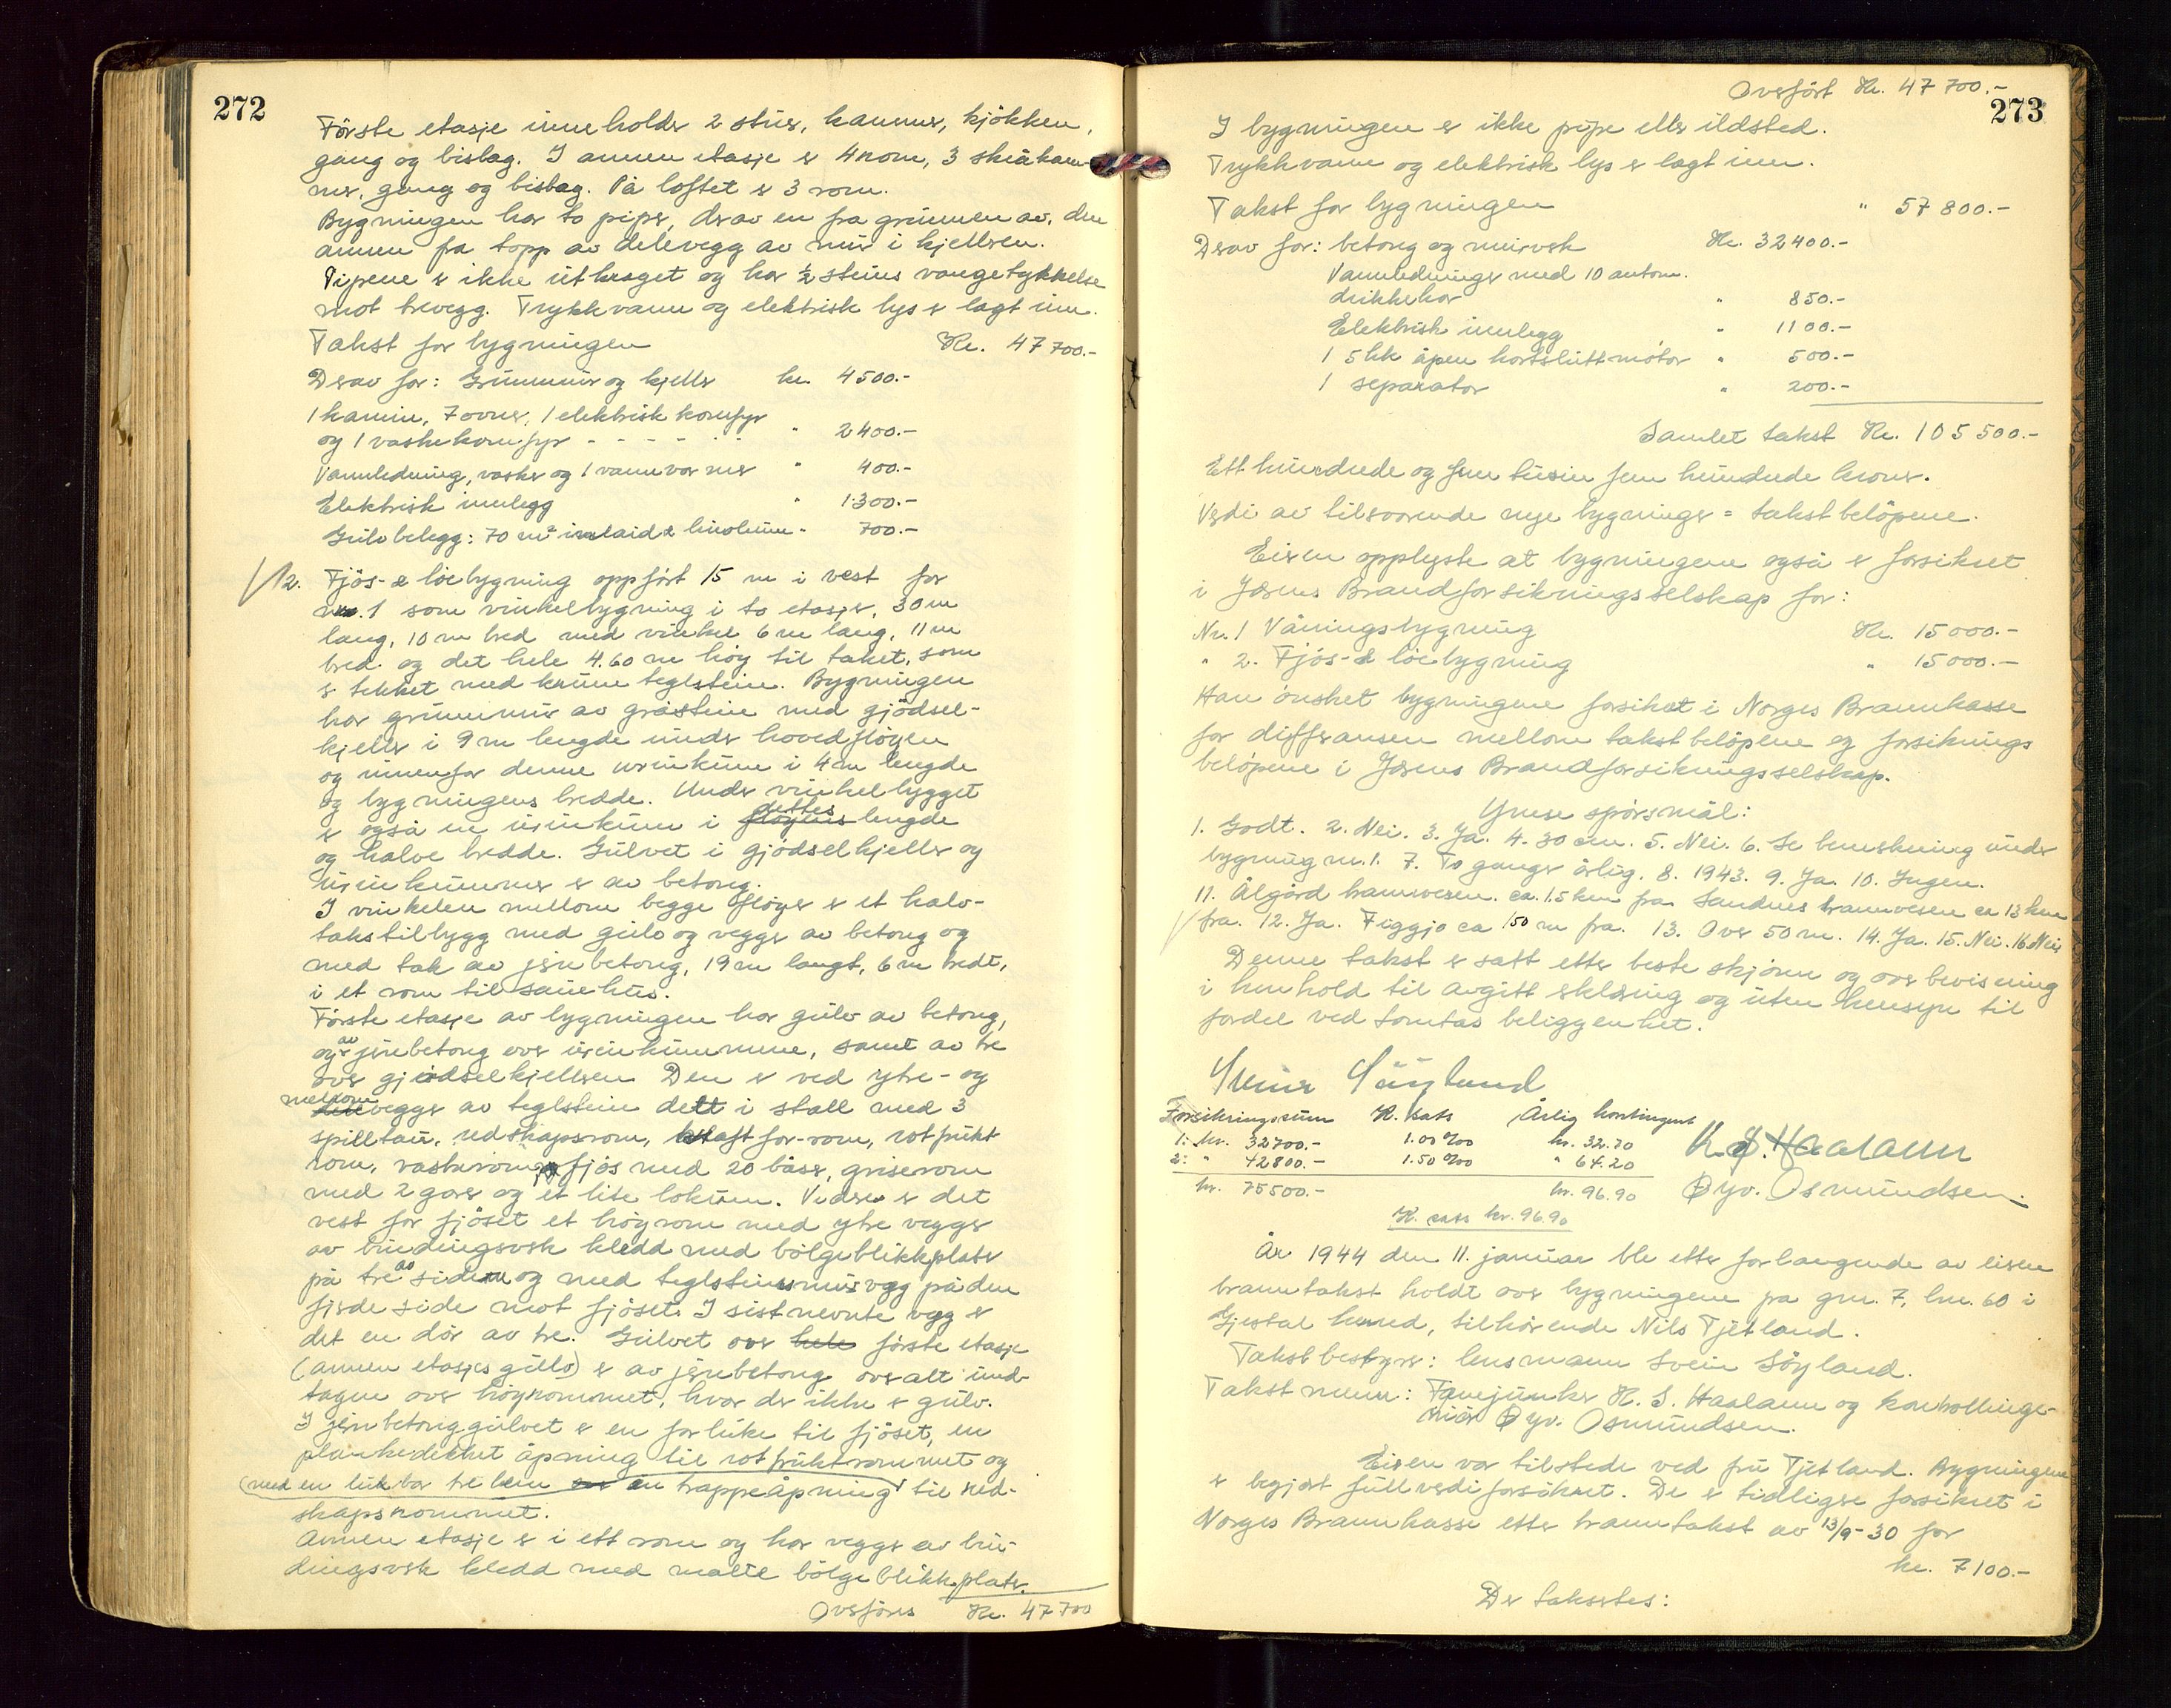 272
Förste etasje inneholder 2 stuer, kammer, kjökken,
gang og bislag. I annen etasje er 4 rom, 3 skråkam-
mer, gang og bislag. På loftet er 3 rom.
Bygningen har to piper, derav en fra grunnen av, den
annen fra topp av delevegg av mur i kjelleren.
Pipene er ikke utkraget og har ½ steins vangetykkelse
mot trevegg. Trykkvann og elektrisk lys er lagt inn.
Takst for bygningen Kr. 47 700.-
Derav for: Grunnmur og kjeller kr. 4500.-
1 kamin, 7 ovner, 1 elektrisk komfyr
og 1 vaskekomfyr - - - - - - " 2400.-
Vannledning, vasker og 1 vannvarmer " 400.-
Elektrisk innlegg " 1300.-
Gulvbelegg: 70 m² inlaid & linoleum " 700.-
2. Fjös- & löebygning oppfört 15 m i vest for
nr. 1 som vinkelbygning i to etasjer, 30 m
lang, 10 m bred med vinkel 6 m lang, 11 m
bred og det hele 4.60 m höy til taket, som
er tekket med krum teglstein. Bygningen
har grunnmur av gråstein med gjödsel-
kjeller i 9 m lengde under hovedflöyen
og innenfor denne urinkum i 4 m lengde
og bygningens bredde. Under vinkelbygget
er også en urinkum i flöyens dettes lengde
og halve bredde. Gulvet i gjödselkjeller og
urinkummer er av betong.
I vinkelen mellom begge flöyer er et halv-
takstilbygg med gulv og vegger av betong og
med tak av jernbetong, 19 m langt, 6 m bredt,
i et rom til sauehus.
Förste etasje av bygningen har gulv av betong,
og av jernbetong over urinkummene, samt av tre
over gjödselkjelleren. Den er ved ytre- og
mellomvegger av teglstein delt i stall med 3
spilltau, redskapsrom, kraftfor-rom, rotfrukt
rom, vaskerom, fjös med 20 båser, griserom
med 2 garer og et lite lokum. Videre er det
vest for fjöset et höyrom med ytre vegger
av bindingsverk kledd med bölgeblikkplater
på tre av sidene og med teglsteinsmurvegg på den
fjerde side mot fjöset. I sistnevnte vegg er
det en dör av tre. Gulvet over hele förste etasje
(annen etasjes gulv) er av jernbetong overalt und-
tagen over höyrommet, hvor der ikke er gulv.
I jernbetonggulvet er en forluke til fjöset, en
plankedekket åpning til rotfruktrommet og
(med en lukbar tre lem en trappeåpning) til red-
skapsrommet.
Annen etasje er i ett rom og har vegger av bin-
dingsverk kledd med malte bölgeblikkplater.
Overföres Kr. 47 700
273
Overfört Kr. 47 700.-
I bygningen er ikke pipe eller ildsted.
Trykkvann og elektrisk lys er lagt inn.
Takst for bygningen " 57 800.-
Derav for: betong og murverk Kr. 32400.-
Vannledninger med 10 autom.
drikkekar " 850.-
Elektrisk innlegg " 1100.-
1 5 hk åpen kortsluttmotor " 500.-
1 separator " 200.-
Samlet takst Kr. 105 500.-
Ett hundrede og fem tusen fem hundrede kroner.
Verdi av tilsvarende nye bygninger = takstbelöpene.
Eieren opplyste at bygningene også er forsikret
i Jærens Brandforsikringsselskap for:
Nr. 1 Våningsbygning Kr. 15000.-
" 2. Fjös- & löebygning " 15000.-
Han önsket bygningene forsikret i Norges Brannkasse
for differansen mellom takstbelöpene og forsiknings
belöpene i Jærens Brandforsikringsselskap.
Ymse spörsmål:
1. Godt. 2. Nei. 3. Ja. 4. 30 cm. 5. Nei. 6. Se bemerkning under
bygning nr. 1. 7. To ganger årlig. 8. 1943. 9. Ja. 10. Ingen.
11. Ålgård brannvesen. ca. 1.5 km fra. Sandnes brannvesen ca 13 km
fra. 12. Ja. Figgjo ca 150 m fra. 13. Over 50 m. 14. Ja. 15. Nei. 16 Nei
Denne takst er satt etter beste skjönn og overbevisning
i henhold til avgitt erklæring og uten hensyn til
fordel ved tomtas beliggenhet.
Svein Söyland
Forsikringssum K. sats Årlig kontingent
1: kr. 32700.- 1.00 ‰ kr. 32.70
2: " 42800.- 1.50 ‰ " 64.20
kr. 75500.- kr. 96.90
K. sats kr. 96.90
K. S. Haalann
Øyv. Osmundsen.
År 1944 den 11. januar ble etter forlangende av eieren
branntakst holdt over bygningene på gnr. 7, bnr. 60 i
Gjestal herred, tilhörende Nils Tjetland.
Takstbestyrer: lensmann Svein Söyland.
Takstmenn: Fanejunker K. S. Haalann og kontrollinge-
niör Øyv. Osmundsen.
Eieren var tilstede ved fru Tjetland. Bygningene
er begjært fullverdiforsikret. De er tidligere forsikret i
Norges Brannkasse etter branntakst av 13/9-30 for
kr. 7100.-
Der taksertes: